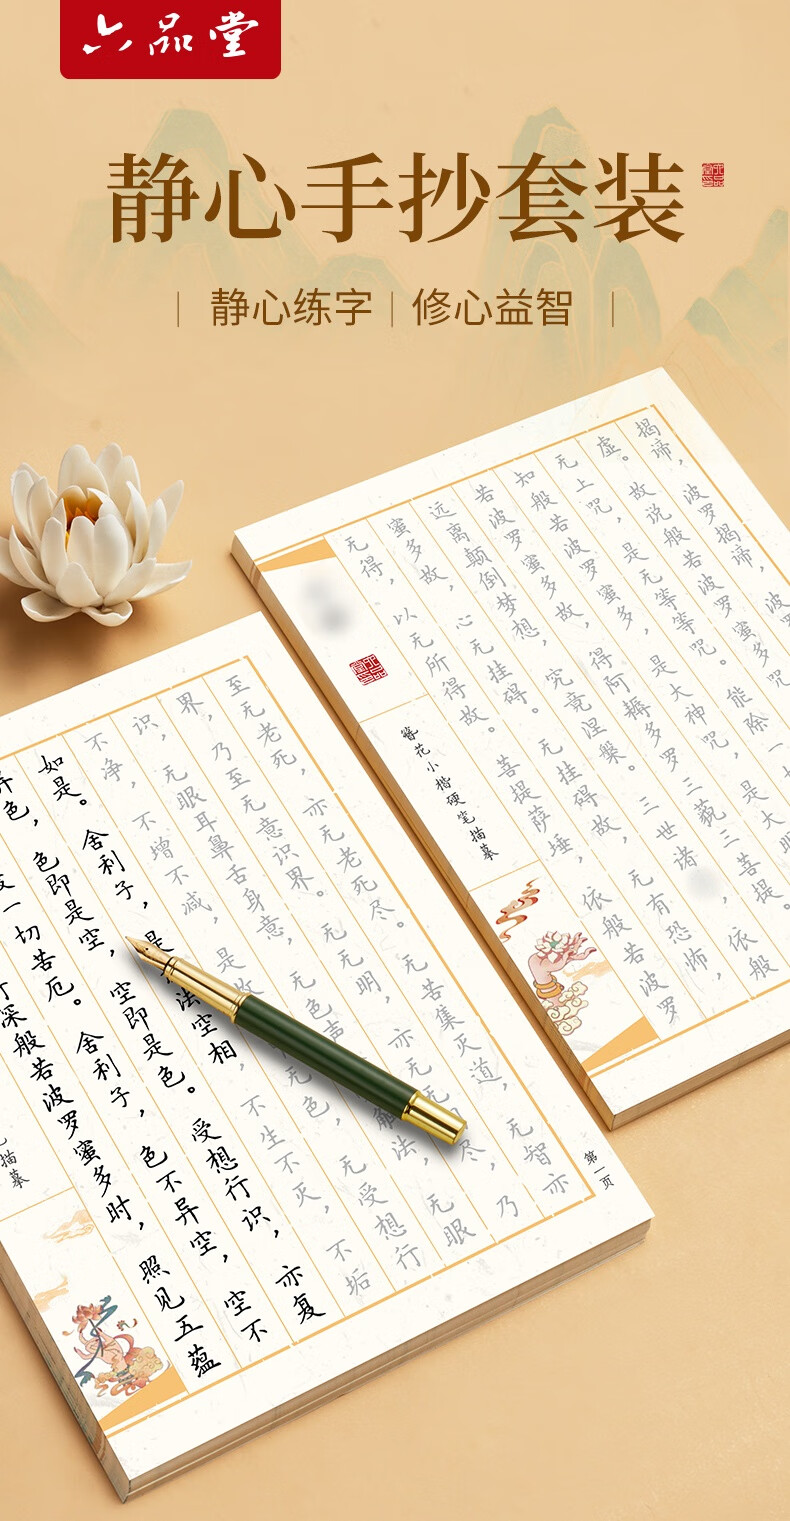 六品堂
静心手抄套装
静心练字
修心益智
深般若波罗蜜多时，照见五蕴
一切苦厄。舍利子，色不异空，空不
异色，色即是空，空即是色。受想行识，亦复
如是。舍利子，是法空相，不生不灭，不垢
不净，不增不减，是故色，无受想行
识，无眼耳鼻舌身意，无色声解法，无眼
界，乃至无意识界。无无明，亦无尽，乃
至无老死，亦无老死尽。无苦集灭道，无智亦
描摹
第一页
簪花小楷硬笔描摹
无得，以无所得故。菩提萨埵，依般若波罗
蜜多故，心无挂碍。无挂碍故，无有恐怖，
远离颠倒梦想，究竟涅槃。三世诸，依般
若波罗蜜多故，得阿耨多罗三藐三菩提。
知般若波罗蜜多，是大神咒，是大明
无上咒，是无等等咒。能除一
虚。故说般若波罗蜜多咒
揭谛，波罗揭谛，波罗